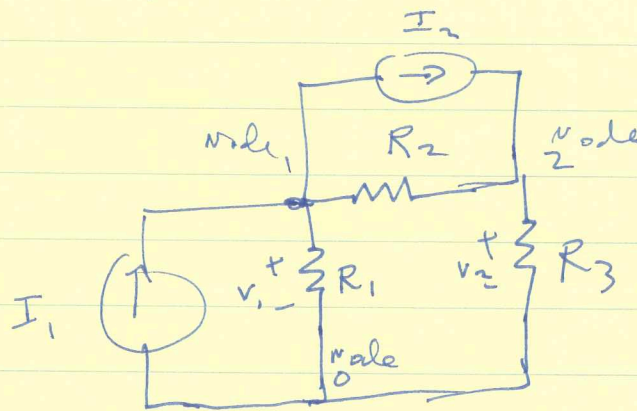 I2
Node1
R2
Node
2
+
V1
-
R1
+
V2
R3
I1
Node
0